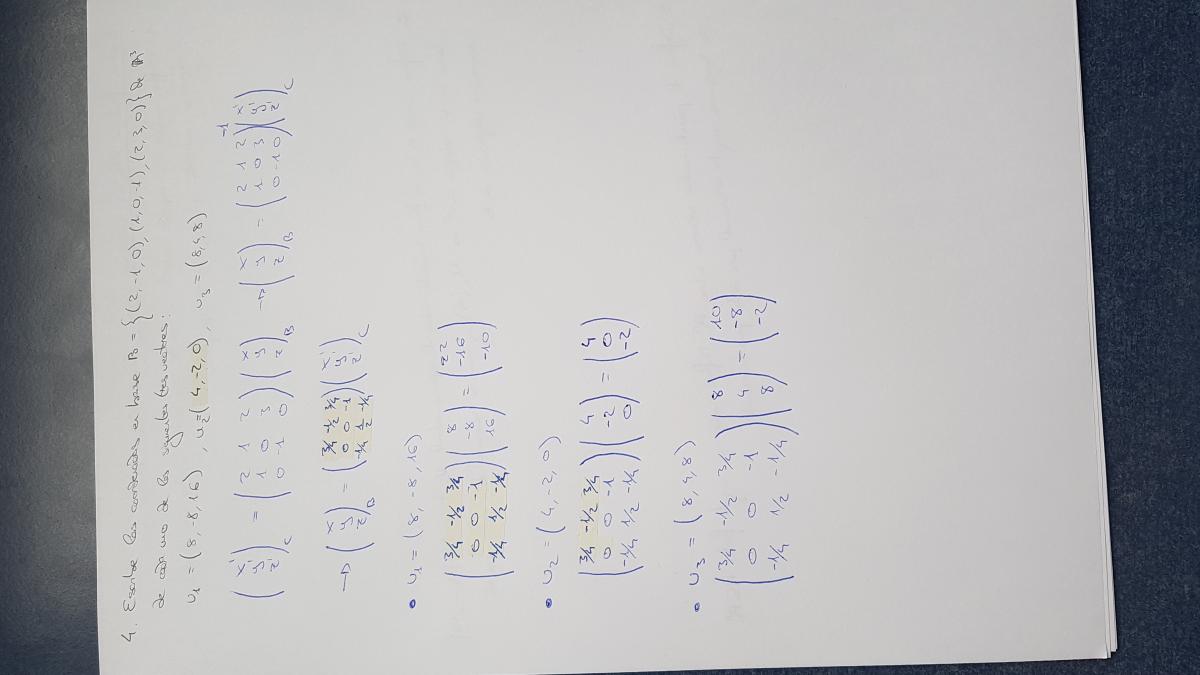 4. Escribe las coordenadas en base B = {(2,-1,0), (1,0,-1), (2,3,0)} de ℝ³
de cada uno de los siguientes tres vectores:
u1 = (8,-8,16), u2 = (4,-2,0), u3 = (8,4,8)
(x' y' z')C = (2 1 2 / 1 0 3 / 0 -1 0)(x y z)B → (x y z)B = (2 1 2 / 1 0 3 / 0 -1 0)^-1 (x' y' z')C
→ (x y z)B = (3/4 -1/2 3/4 / 0 0 -1 / -1/4 1/2 -1/4)(x' y' z')C
• u1 = (8, -8, 16)
(3/4 -1/2 3/4 / 0 0 -1 / -1/4 1/2 -1/4)(8 -8 16) = (22 -16 -10)
• u2 = (4, -2, 0)
(3/4 -1/2 3/4 / 0 0 -1 / -1/4 1/2 -1/4)(4 -2 0) = (4 0 -2)
• u3 = (8, 4, 8)
(3/4 -1/2 3/4 / 0 0 -1 / -1/4 1/2 -1/4)(8 4 8) = (10 -8 -2)